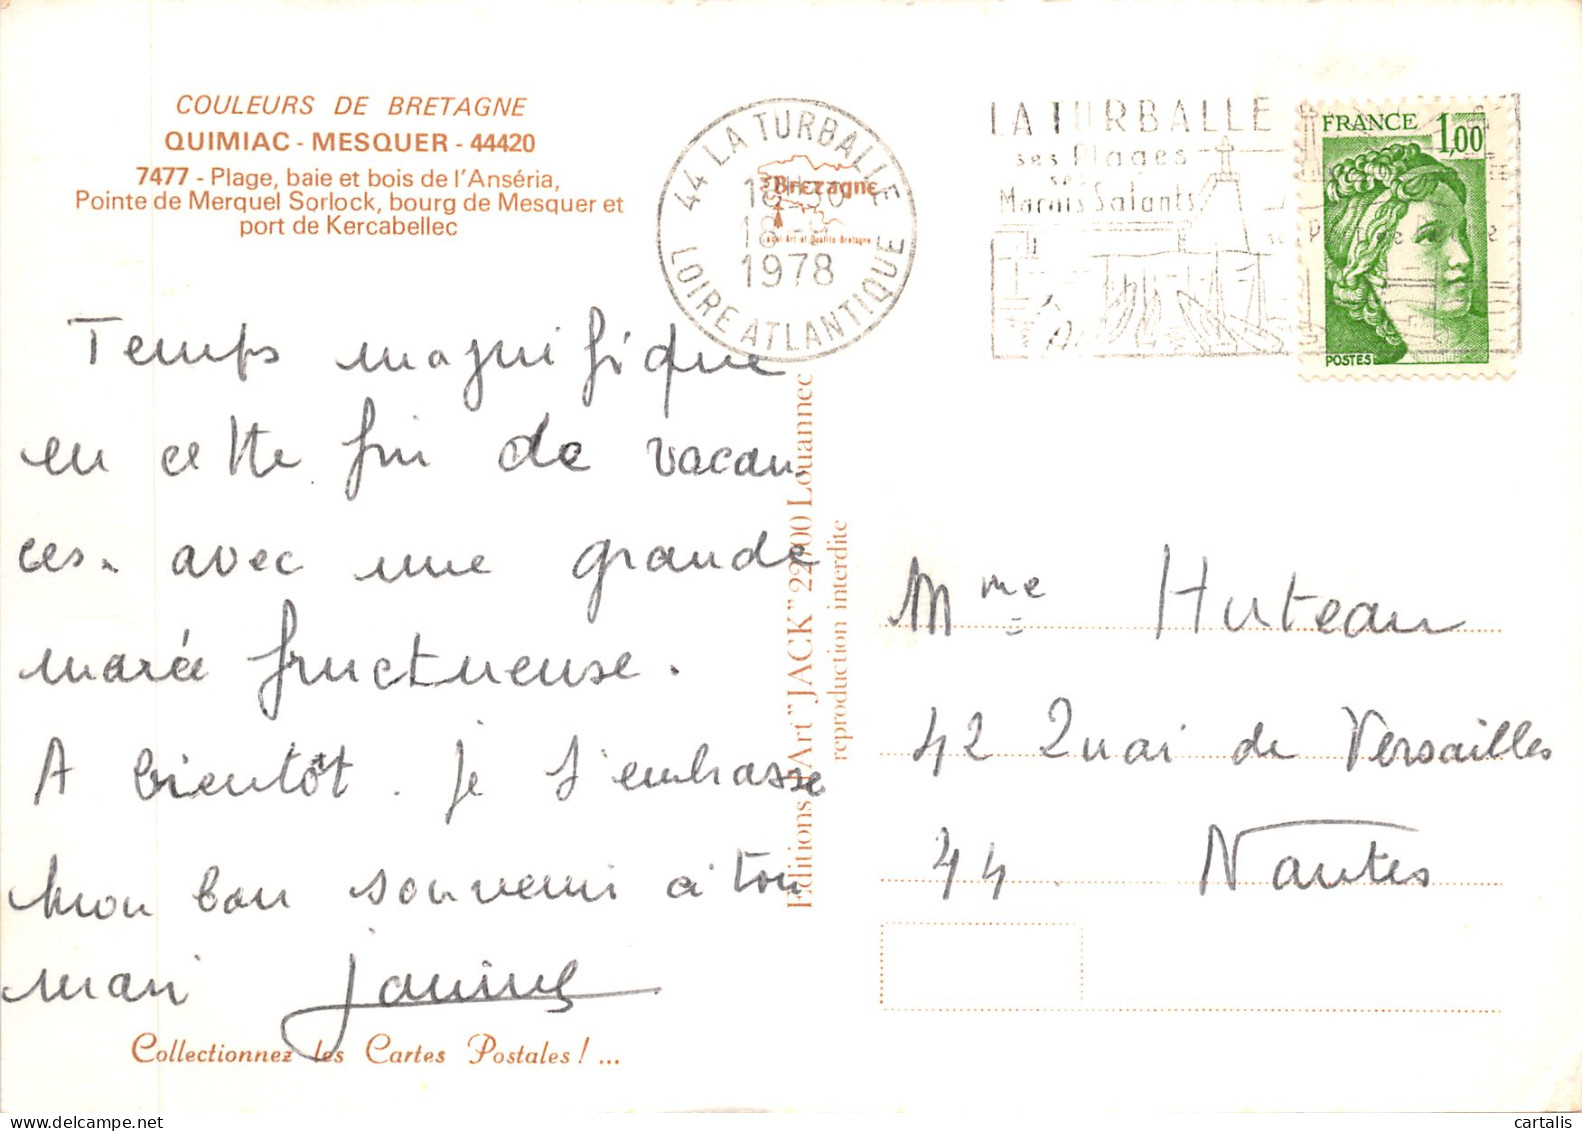 COULEURS DE BRETAGNE
QUIMIAC - MESQUER - 44420
7477 - Plage, baie et bois de l'Anséria,
Pointe de Merquel Sorlock, bourg de Mesquer et
port de Kercabellec
Temps magnifique
en cette fin de vacan-
ces. avec une grande
marée fructueuse.
A bientôt. je t'embrasse
mon bon souvenir à ton
mari Janine
Collectionnez les Cartes Postales ! ...
44 LA TURBALLE
18-9
1978
LOIRE ATLANTIQUE
Bretagne
Label Art et Qualité Bretagne
Editions d'Art "JACK" 22700 Louannec
reproduction interdite
LA TURBALLE
ses Plages
ses
Marais Salants
FRANCE 1,00
POSTES
Mme Huteau
42 Quai de Versailles
44 Nantes
cartalis